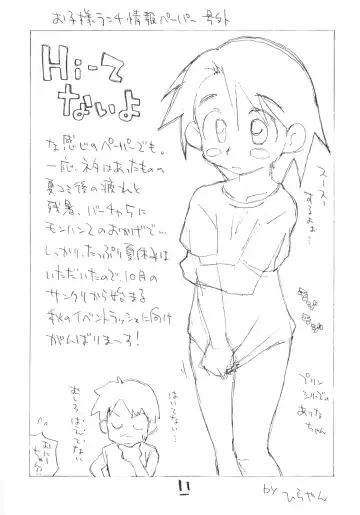 お子様ランチ情報ペーパー 号外
Hi-Z
ないよ
な感じのペーパーでも。
一応、ネタはあたものの
夏コミ後の疲れと
残暑、バーチャ5に
モンハン2のおかげで…
しっかり、たっぷり夏休みは
いただいたので10月の
サンクリから始まる
秋のイベントラッシュに向け
がんばりまーす!
スースー
するよぉ…
はいてない…
むしろ
はえてない
プリン
シリーズの
ありな
ちゃん
11
by
ひらやん